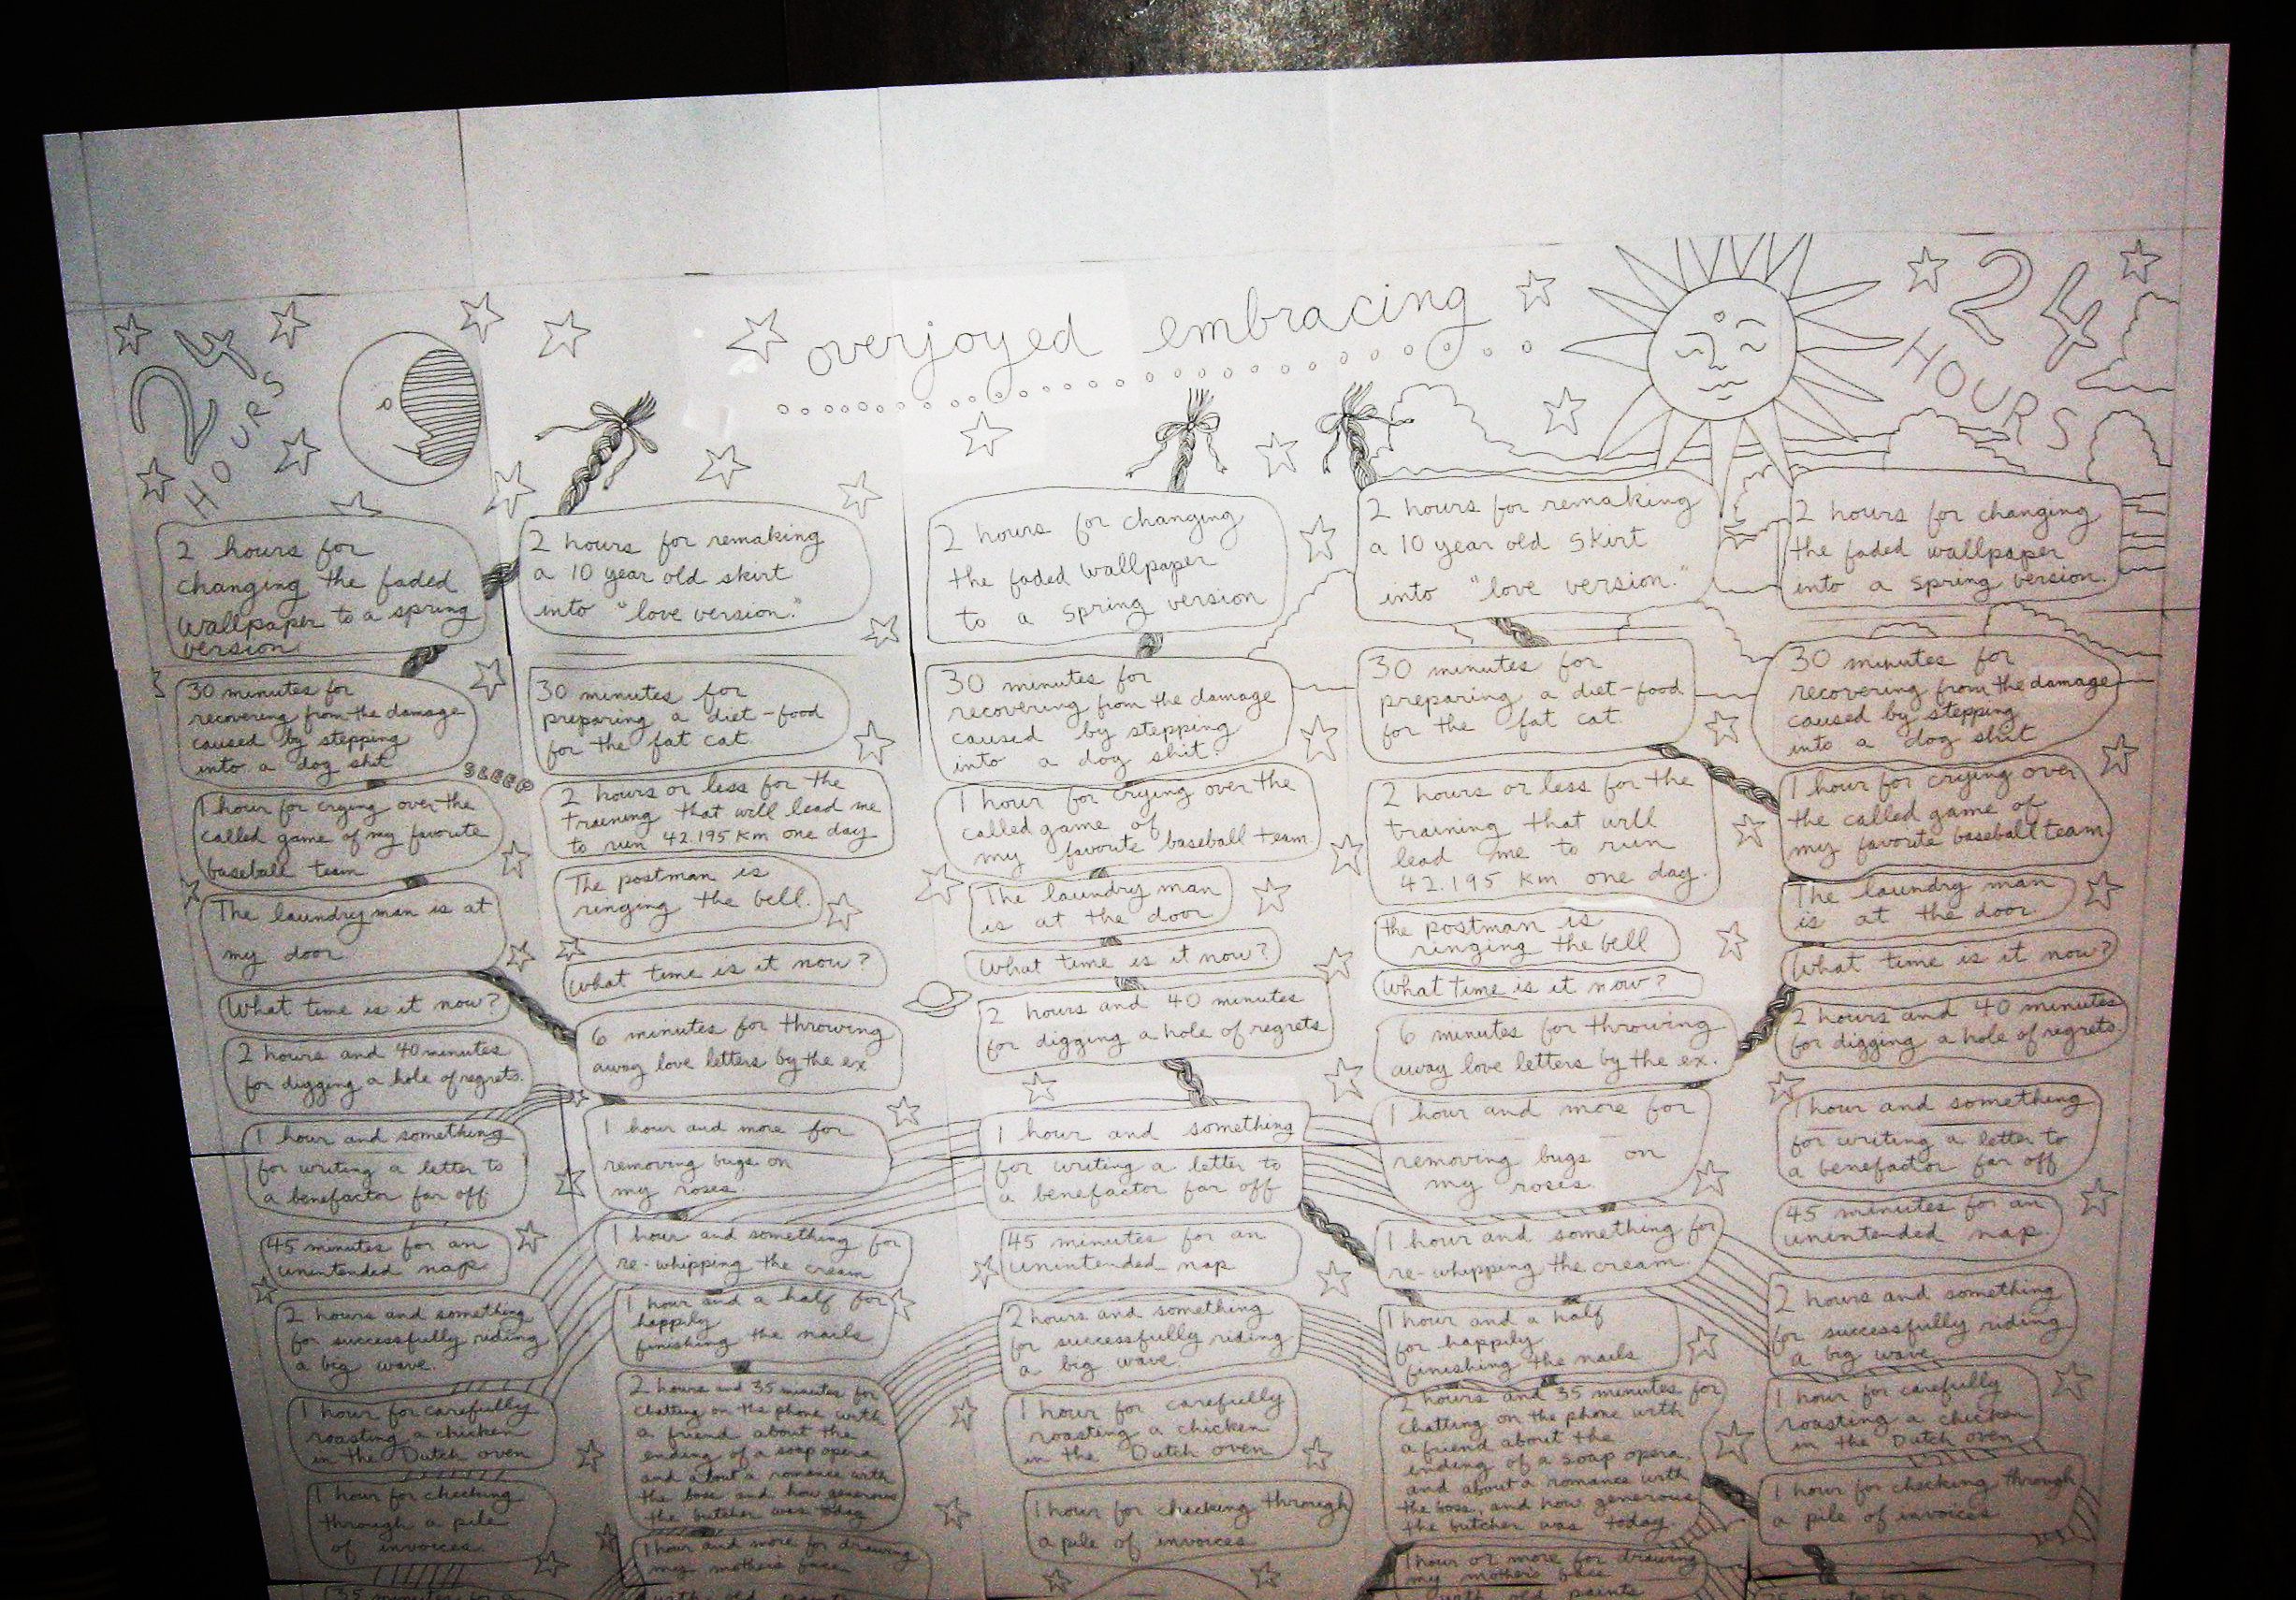 overjoyed embracing
24
HOURS
24
HOURS
2 hours for
changing the faded
wallpaper to a spring
version.
30 minutes for
recovering from the damage
caused by stepping
into a dog shit
SLEEP
1 hour for crying over the
called game of my favorite
baseball team
The laundry man is at
my door
What time is it now?
2 hours and 40 minutes
for digging a hole of regrets.
1 hour and something
for writing a letter to
a benefactor far off.
45 minutes for an
unintended nap.
2 hours and something
for successfully riding
a big wave.
1 hour for carefully
roasting a chicken
in the Dutch oven
1 hour for checking
through a pile
of invoices
35 minutes for a
2 hours for remaking
a 10 year old skirt
into "love version."
30 minutes for
preparing a diet-food
for the fat cat.
2 hours or less for the
training that will lead me
to run 42.195 km one day
The postman is
ringing the bell.
What time is it now?
6 minutes for throwing
away love letters by the ex
1 hour and more for
removing bugs on
my roses.
1 hour and something for
re-whipping the cream
1 hour and a half for
happily
finishing the nails
2 hours and 35 minutes for
chatting on the phone with
a friend about the
ending of a soap opera
and about a romance with
the boss and how generous
the butcher was today
1 hour and more for drawing
my mothers face
with old paints
2 hours for changing
the faded wallpaper
to a spring version
30 minutes for
recovering from the damage
caused by stepping
into a dog shit.
1 hour for crying over the
called game of
my favorite baseball team
The laundry man
is at the door
What time is it now?
2 hours and 40 minutes
for digging a hole of regrets
1 hour and something
for writing a letter to
a benefactor far off
45 minutes for an
unintended nap
2 hours and something
for successfully riding
a big wave.
1 hour for carefully
roasting a chicken
in the Dutch oven
1 hour for checking through
a pile of invoices
2 hours for remaking
a 10 year old skirt
into "love version."
30 minutes for
preparing a diet-food
for the fat cat.
2 hours or less for the
training that will
lead me to run
42.195 km one day.
the postman is
ringing the bell
What time is it now?
6 minutes for throwing
away love letters by the ex.
1 hour and more for
removing bugs on
my roses.
1 hour and something for
re-whipping the cream.
1 hour and a half
for happily
finishing the nails
2 hours and 35 minutes for
chatting on the phone with
a friend about the
ending of a soap opera.
and about a romance with
the boss, and how generous
the butcher was today.
1 hour or more for drawing
my mothers face
with old paints
2 hours for changing
the faded wallpaper
into a spring version.
30 minutes for
recovering from the damage
caused by stepping
into a dog shit
1 hour for crying over
the called game of
my favorite baseball team.
The laundry man
is at the door.
What time is it now?
2 hours and 40 minutes
for digging a hole of regrets.
1 hour and something
for writing a letter to
a benefactor far off
45 minutes for an
unintended nap.
2 hours and something
for successfully riding
a big wave
1 hour for carefully
roasting a chicken
in the Dutch oven
1 hour for checking through
a pile of invoices